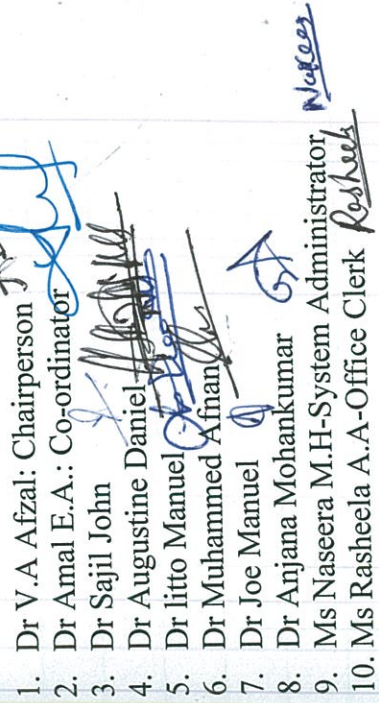 1. Dr V.A Afzal: Chairperson
2. Dr Amal E.A.: Co-ordinator
3. Dr Sajil John
4. Dr Augustine Daniel
5. Dr litto Manuel
6. Dr Muhammed Afnan
7. Dr Joe Manuel
8. Dr Anjana Mohankumar
9. Ms Naseera M.H-System Administrator
10. Ms Rasheela A.A-Office Clerk